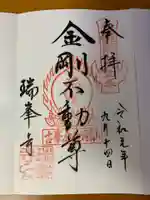 奉拝
令和元年
九月十四日
金剛不動尊
瑞峯寺